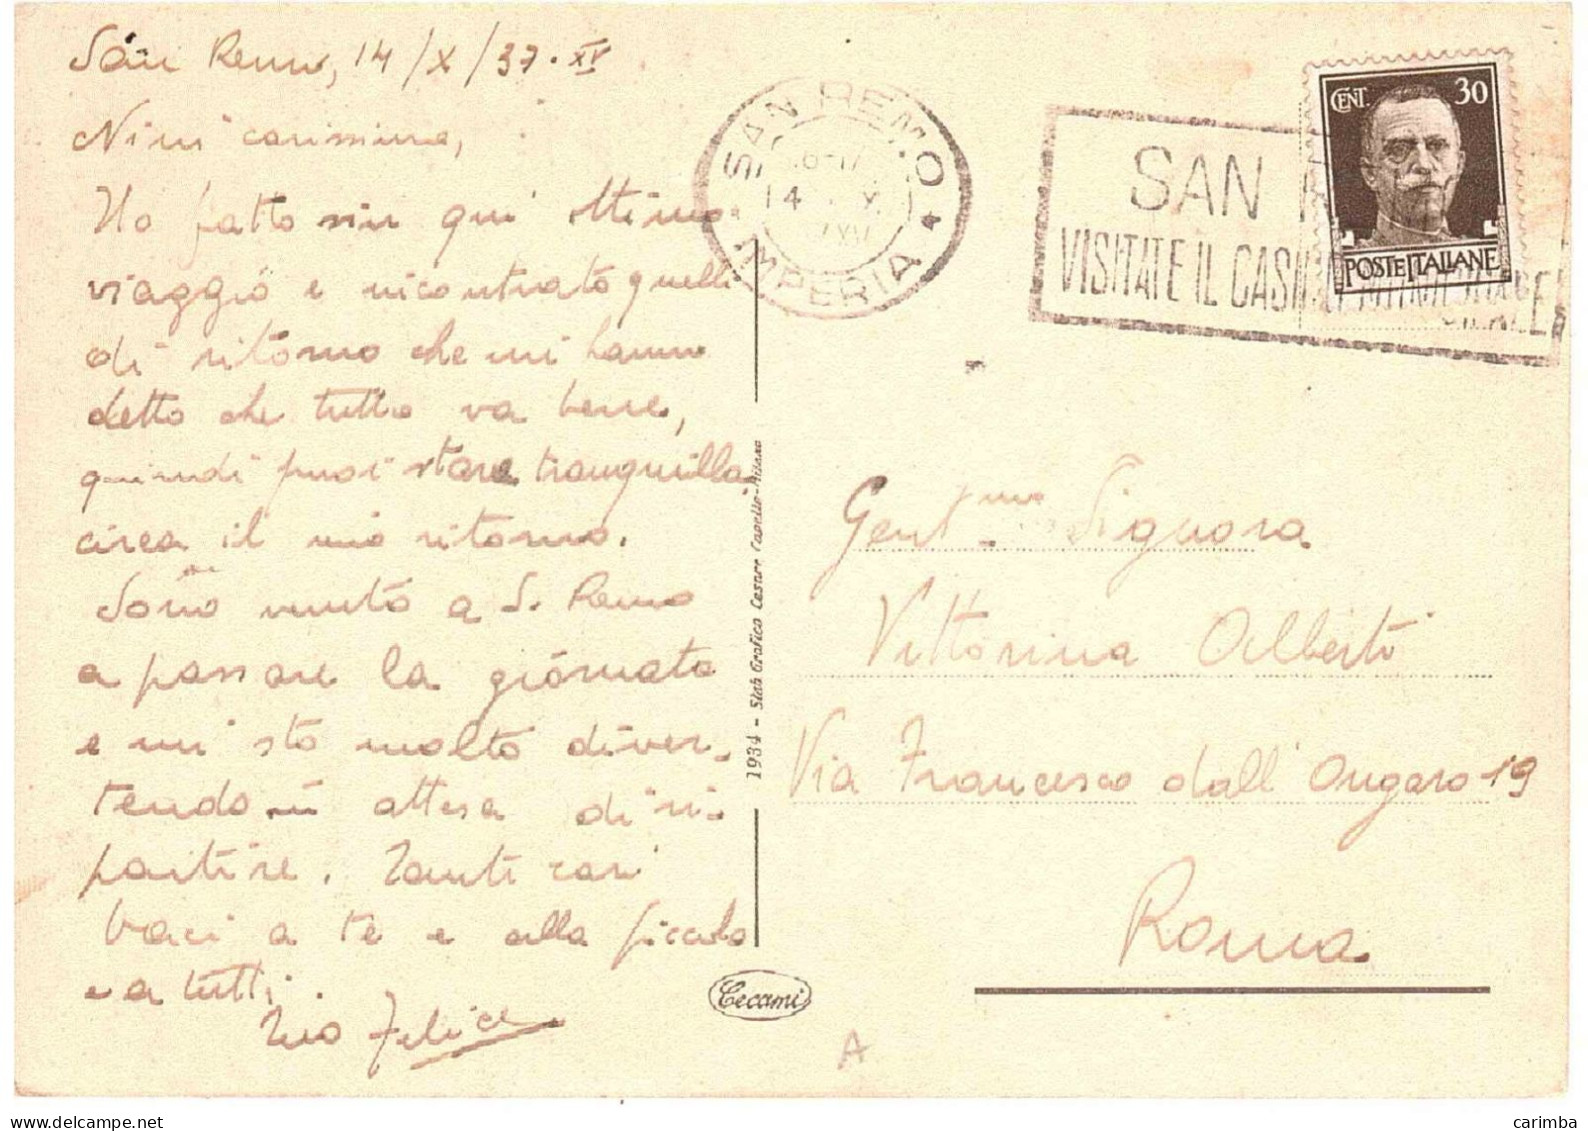 San Remo, 14/X/37. XV
Nini carissima,
Ho fatto sin qui ottimo
viaggio e ricontrato quelli
di ritorno che mi hanno
detto che tutto va bene,
quindi puoi stare tranquilla
circa il mio ritorno.
Sono venuto a S. Remo
a passare la giornata
e mi sto molto diver-
tendo in attesa di ri-
partire. Tanti cari
baci a te e alla piccola
e a tutti.
Tuo Felice
1934 - Stab Grafico Cesare Capello-Milano
Cecami
SAN REMO
14 X
XV
* IMPERIA *
SAN
VISITATE IL CASINO MUNICIPALE
CENT. 30
POSTE ITALIANE
Gent.ma Signora
Vittorina Alberti
Via Francesco dall'Ongaro 19
Roma
A
carimba